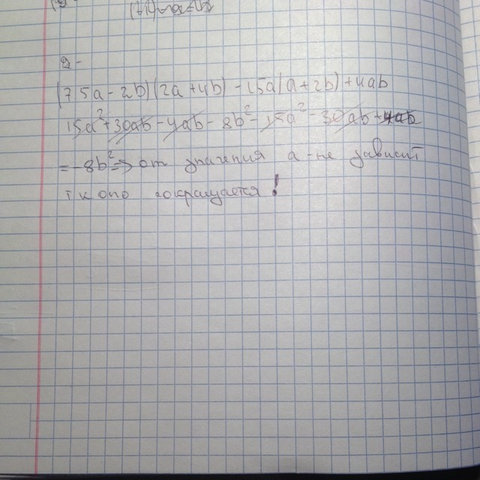 2-
(7,5a-2b)(2a+4b)-15a(a+2b)+4ab
15a²+30ab-4ab-8b²-15a²-30ab+4ab
=-8b²=> от значения а-не зависит
т к оно сокращается!